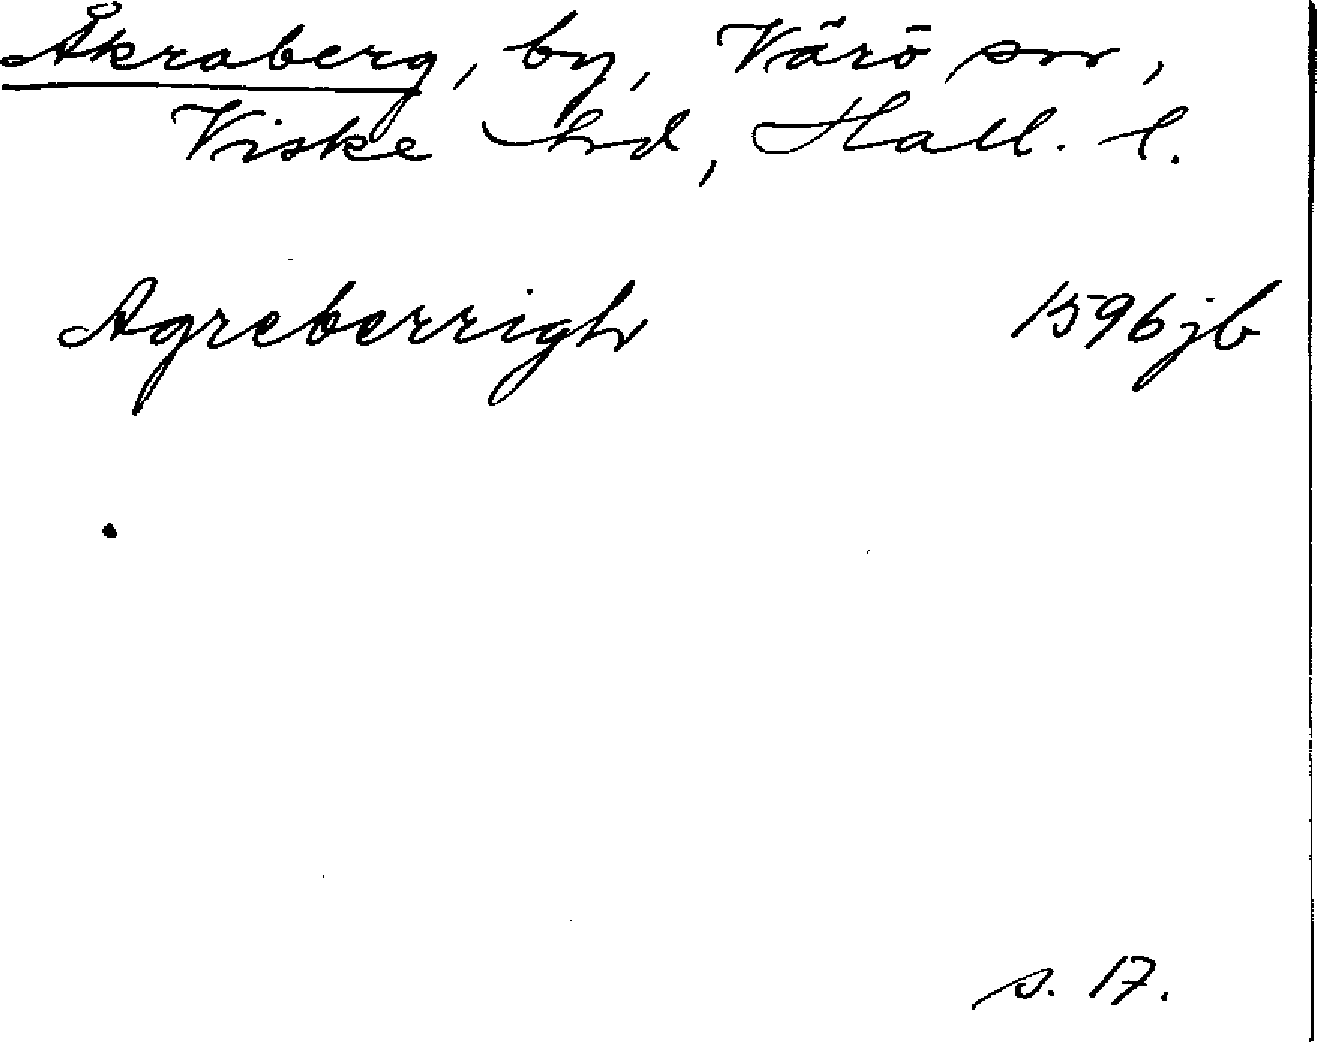 Åkraberg, by, Värö sn,
Viske hd, Hall. l.
Agreberrigh 1596 jb
s. 17.